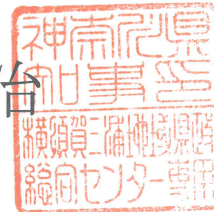 神奈川県
知事印
横須賀三浦地域県政
総合センター専用
治